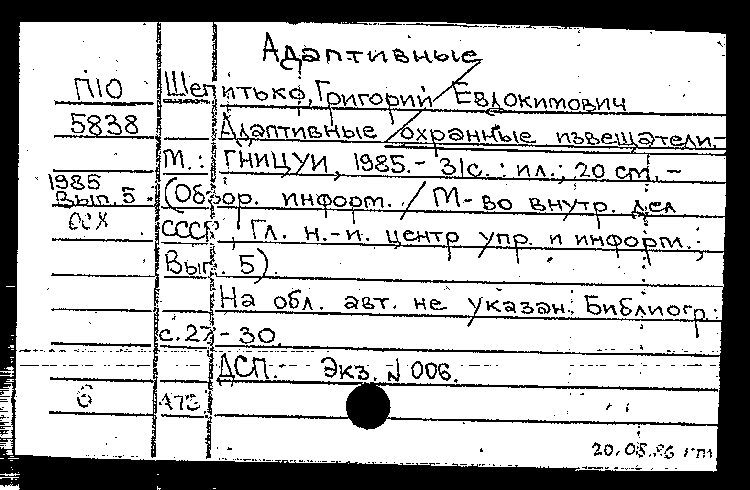 Адаптивные
П10 Шепитько, Григорий Евдокимович
5838 Адаптивные охранные извещатели.-
М.: ГНИЦУИ, 1985.- 31с.: ил.; 20 см. -
1985
Вып. 5. (Обзор. информ. / М-во внутр. дел
ОСХ СССР, Гл. н.-и. центр упр. и информ.;
Вып. 5).
На обл. авт. не указан. Библиогр.:
с.27-30.
ДСП.- Экз. № 006.
6 173
20.08.86